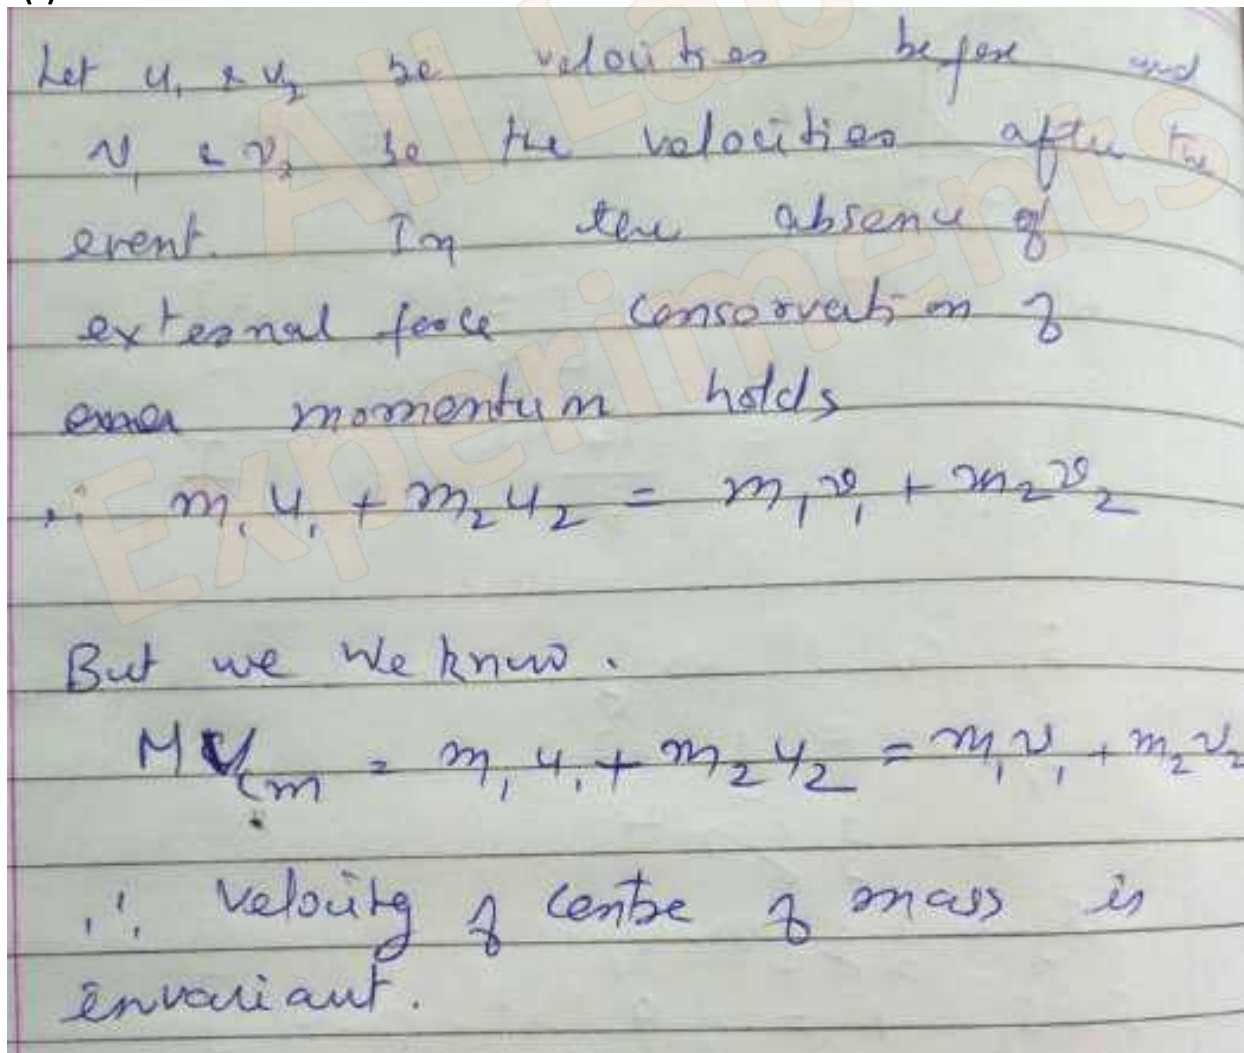 Let u₁ & u₂ be velocities before and
v₁ & v₂ be the velocities after the
event. In the absence of
external force conservation of
momentum holds
∴ m₁u₁ + m₂u₂ = m₁v₁ + m₂v₂
But we We know.
M V_cm = m₁u₁ + m₂u₂ = m₁v₁ + m₂v₂
∴ velocity of centre of mass is
invariant.
All Lab
Experiments